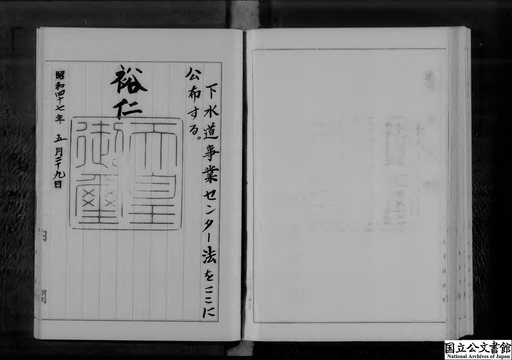 下水道事業センター法をここに
公布する。
裕仁
天皇
御璽
昭和四十七年五月二十九日
内閣
国立公文書館
National Archives of Japan